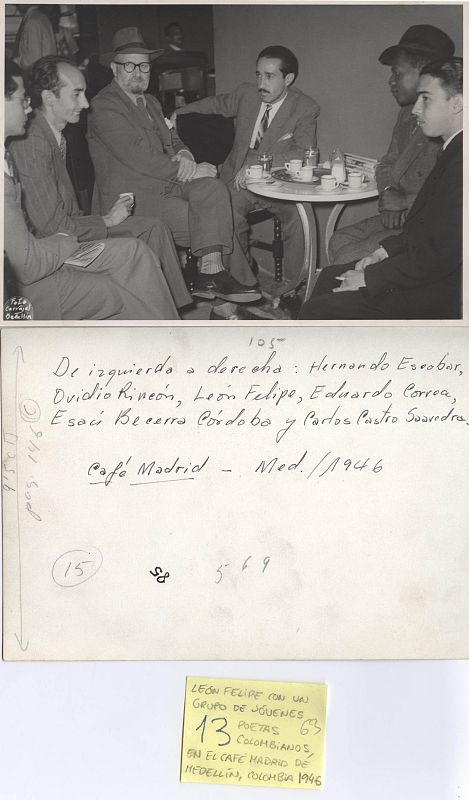 Foto
Carvajal
Medellín
105
De izquierda a derecha: Hernando Escobar,
Ovidio Rincón, León Felipe, Eduardo Correa,
Esaú Becerra Córdoba y Carlos Castro Saavedra.
Café Madrid - Med./1946
9'5 cm
pag. 146 ©
15
58
569
LEÓN FELIPE CON UN
GRUPO DE JÓVENES
13 POETAS 63
COLOMBIANOS,
EN EL CAFÉ MADRID DE
MEDELLÍN, COLOMBIA 1946